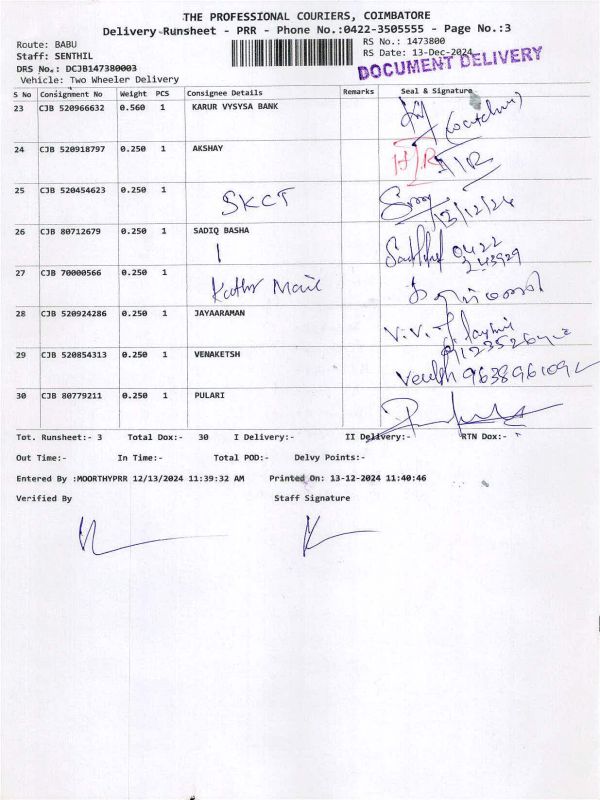 THE PROFESSIONAL COURIERS, COIMBATORE
Delivery Runsheet - PRR - Phone No.:0422-3505555 - Page No.:3
Route: BABU RS No.: 1473800
Staff: SENTHIL RS Date: 13-Dec-2024
DRS No.: DCJB147380003 DOCUMENT DELIVERY
Vehicle: Two Wheeler Delivery
S No Consignment No Weight PCS Consignee Details Remarks Seal & Signature
23 CJB 520966632 0.560 1 KARUR VYSYSA BANK
24 CJB 520918797 0.250 1 AKSHAY H/R A/R
25 CJB 520454623 0.250 1 SKCT 13/12/24
26 CJB 80712679 0.250 1 SADIQ BASHA 0422
243929
27 CJB 70000566 0.250 1 Kathir Mail
28 CJB 520924286 0.250 1 JAYAARAMAN V.V.
29 CJB 520854313 0.250 1 VENAKETSH
30 CJB 80779211 0.250 1 PULARI
Tot. Runsheet:- 3 Total Dox:- 30 I Delivery:- II Delivery:- RTN Dox:-
Out Time:- In Time:- Total POD:- Delvy Points:-
Entered By :MOORTHYPRR 12/13/2024 11:39:32 AM Printed On: 13-12-2024 11:40:46
Verified By Staff Signature